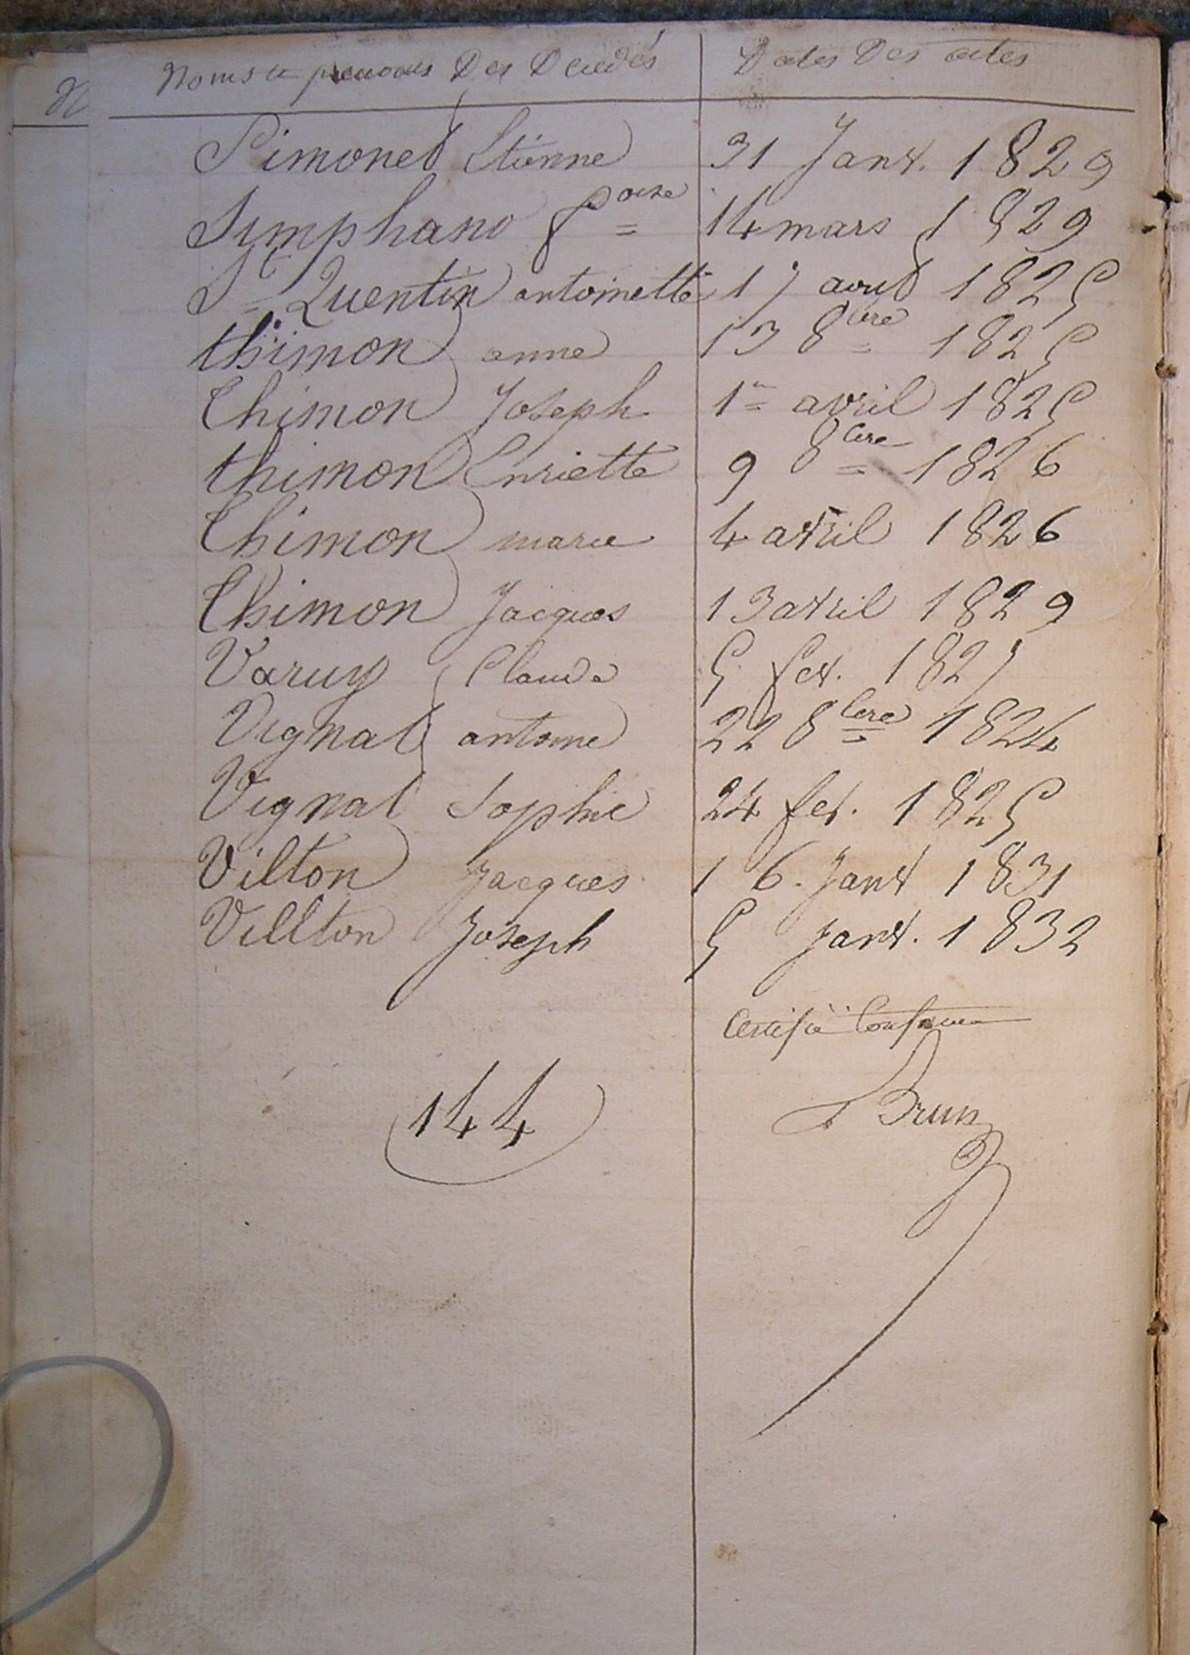 N Noms et prenoms Des Decedés Dates Des actes
Simonet Etienne 31 Janv. 1829
Simphano foise 14 mars 1829
St Quentin antoinette 17 aout 1825
thimon anne 13 8bre 1825
Thimon Joseph 1er avril 1825
thimon Enriette 9 8bre 1826
Thimon marie 4 avril 1826
Thimon Jacques 13 avril 1829
Varuy Claude 5 fev. 1827
Vignal antoine 22 8bre 1824
Vignal Sophie 24 fev. 1825
Vilton Jacques 16. Janv 1831
Villton Joseph 5 Janv. 1832
Certifié Conforme
144
Brun